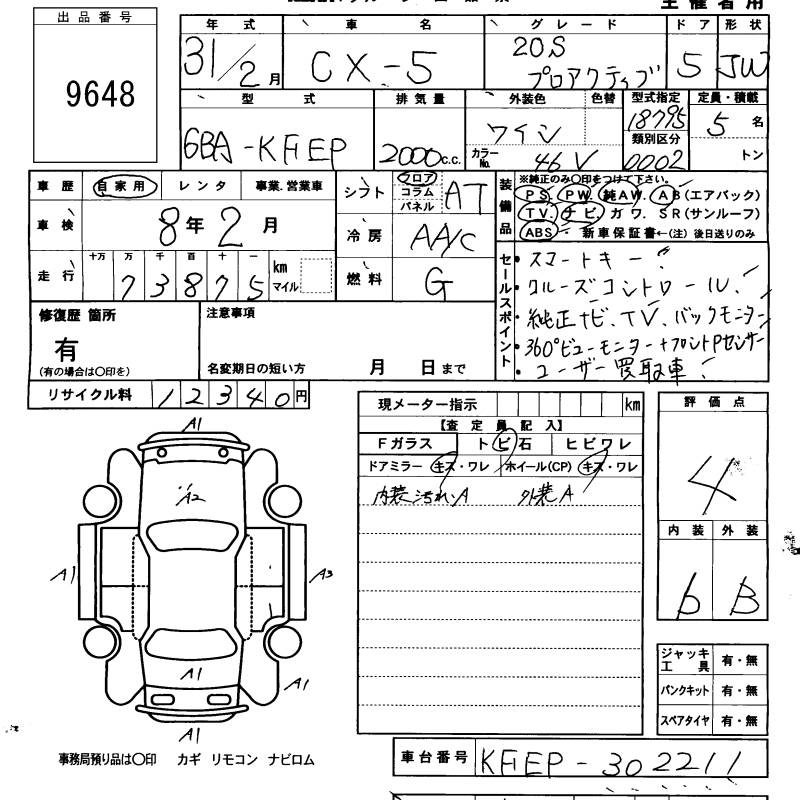 主催者用
出品番号
9648
年式 車名 グレード ドア 形状
31/2月 CX-5 20S プロアクティブ 5 JW
型式 排気量 外装色 色替 型式指定 定員・積載
6BA-KFEP 2000c.c. ワイン 18795 5名
カラーNo. 46V 類別区分 0002 トン
車歴 自家用 レンタ 事業.営業車
シフト フロア コラム パネル AT
車検 8年2月
冷房 AA/C
走行 十万 万 千 百 十 一
73875 km マイル
燃料 G
装備品 ※純正のみ○印をつけて下さい。
PS. PW. 純AW. AB(エアバック)
TV. ナビ. カワ. SR(サンルーフ)
ABS 新車保証書←(注) 後日送りのみ
セールスポイント
スマートキー
クルーズコントロール
純正ナビ、TV、バックモニター
360°ビューモニター+フロントPセンサー
ユーザー買取車
修復歴 箇所
有
(有の場合は○印を)
注意事項
名変期日の短い方 月 日まで
リサイクル料 12340円
現メーター指示 km
【査定員記入】
Fガラス トビ石 ヒビワレ
ドアミラー キズ・ワレ ホイール(CP) キズ・ワレ
内装汚れ.A 外装A
評価点
4
内装 外装
b B
A1
A2
A1
A3
A1
A1
A1
ジャッキ工具 有・無
パンクキット 有・無
スペアタイヤ 有・無
事務局預り品は○印 カギ リモコン ナビロム
車台番号 KFEP-302211